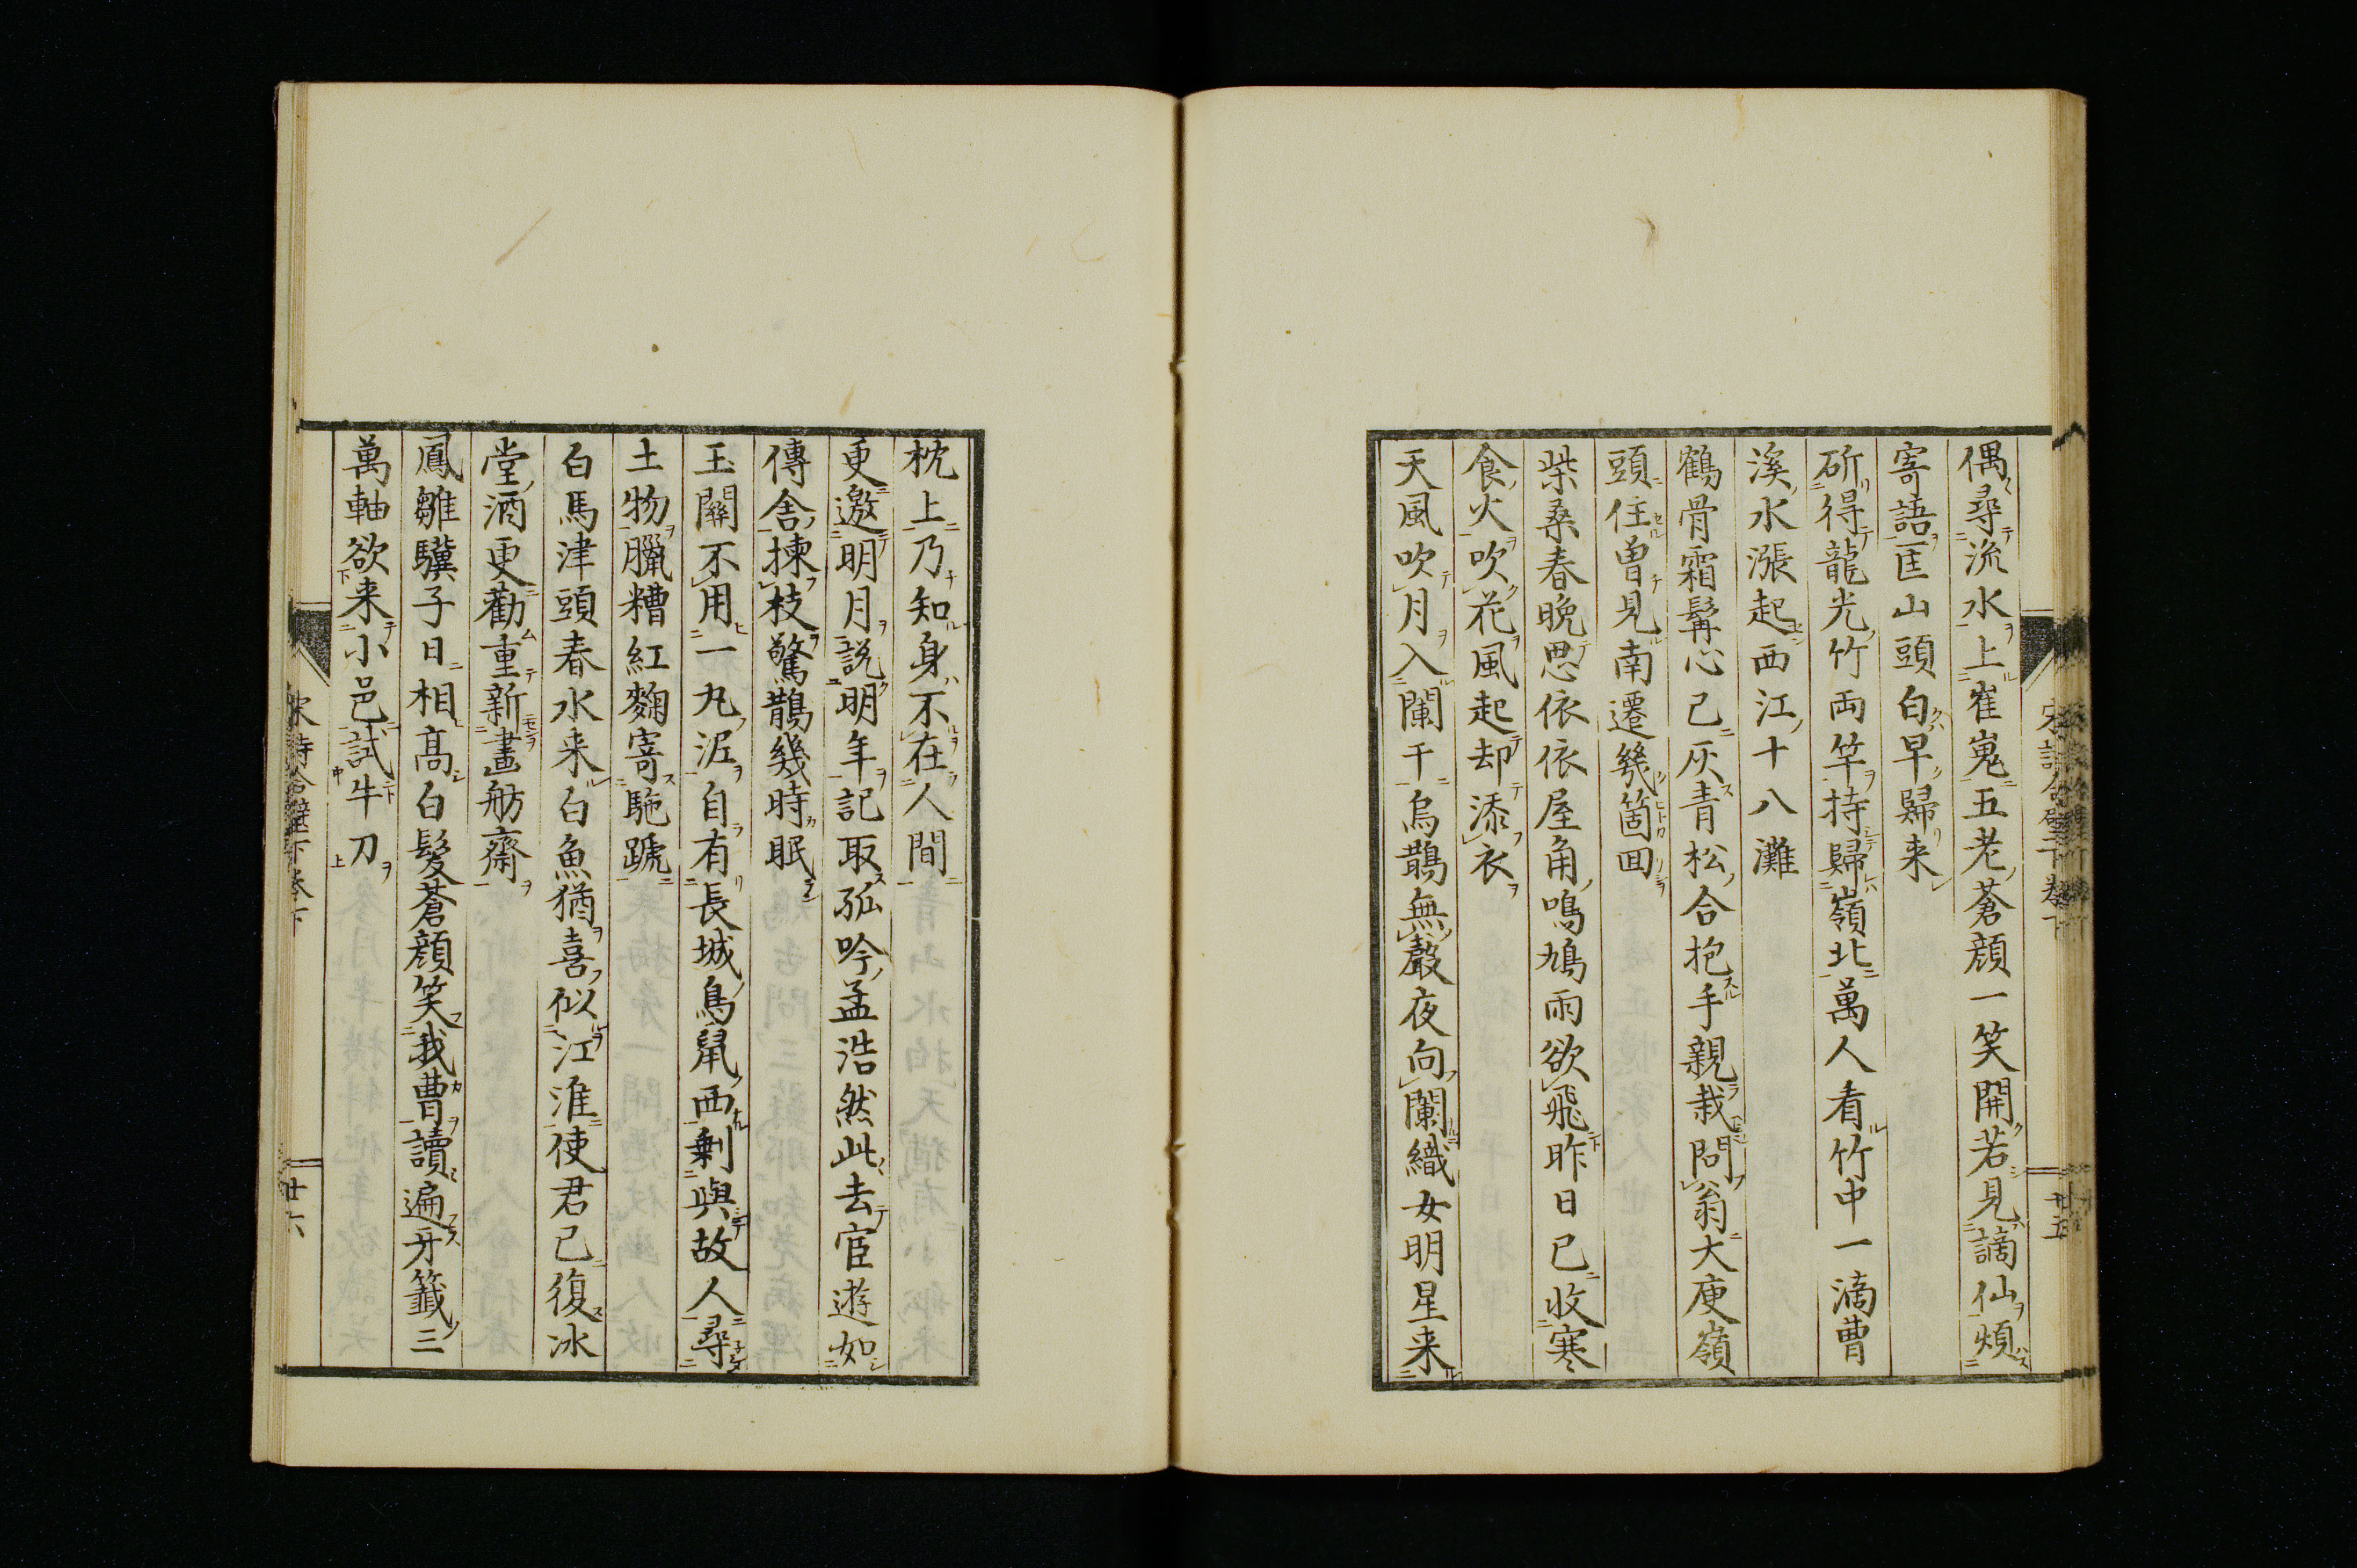 偶尋流水上崔嵬五老蒼顏一笑開若見謫仙煩
寄語匡山頭白早歸来
斫得龍光竹両竿持歸嶺北萬人看竹中一滴曹
溪水漲起西江十八灘
鶴骨霜髯心已灰青松合抱手親栽問翁大庾嶺
頭住曽見南遷幾箇囬
柴桑春晩思依依屋角鳴鳩雨欲飛昨日已收寒
食火吹花風起却添衣
天風吹月入闌干烏鵲無聲夜向闌織女明星来
枕上乃知身不在人間
更邀明月説明年記取孤吟孟浩然此去宦遊如
傳舍揀枝驚鵲幾時眠
玉關不用一丸泥自有長城鳥鼠西剰與故人尋
土物臘糟紅麴寄駞蹄
白馬津頭春水来白魚猶喜似江淮使君已復冰
堂酒更勸重新畫舫齋
鳳雛驥子日相髙白髮蒼顔笑我曹讀遍牙籤三
萬軸欲来小邑試牛刀
廿六